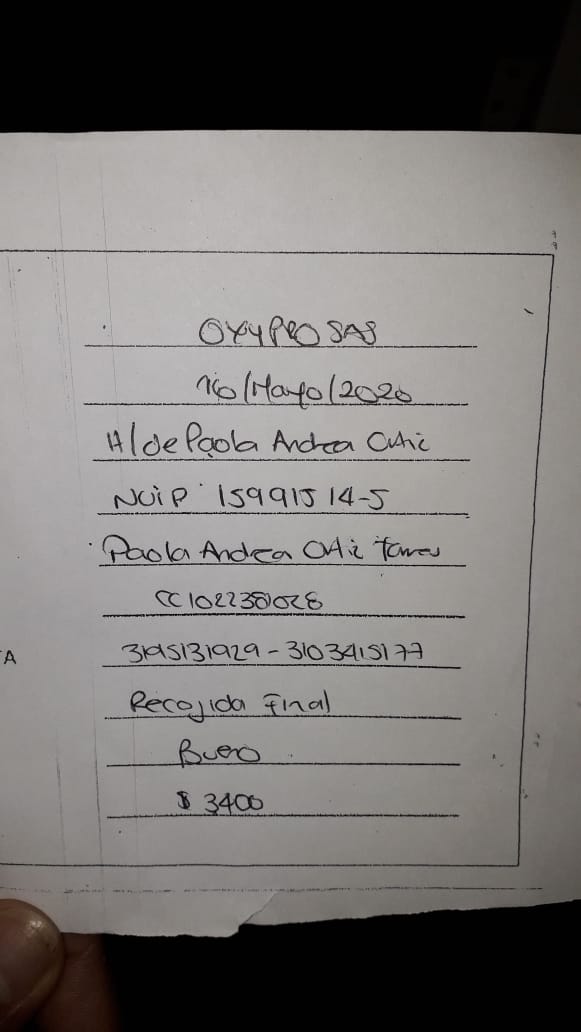 OXYPRO SAS
16/Mayo/2020
H/de Paola Andrea Ortiz
NUIP 15991514-5
Paola Andrea Ortiz Torres
CC
3195131929-3103415177
A
Recojida Final
Bueno
$ 3400